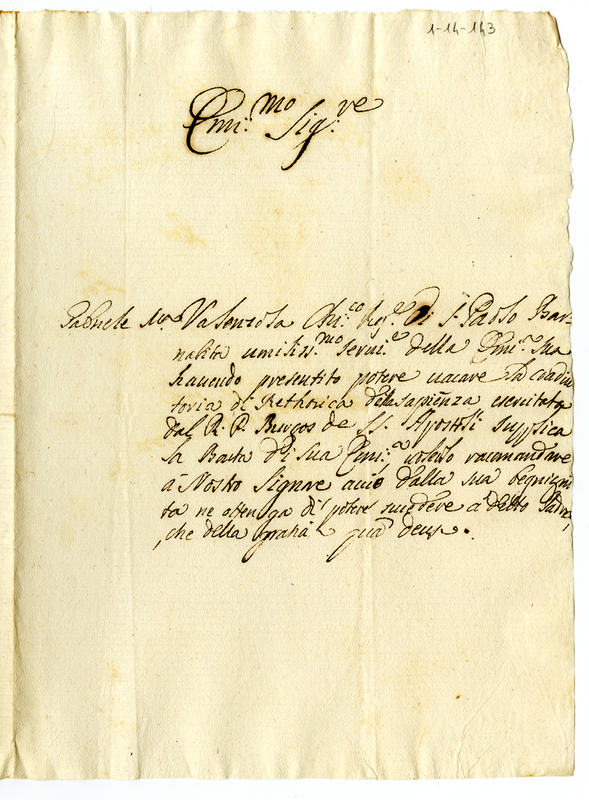 1-14-143
Emi:mo Sig:re
Gabriele Ma Valenzola Chi:co Reg:re Di S. Paolo Bar=
nabita umiliss:mo servi:e della Emi:a sua
havendo presentito potere vacare la
toria di Rethorica della sapienza esercitata
dal R. P. Burgos de SS. Apostoli supplica
la Bontà Di Sua Emi:a volerlo racomandare
à Nostro Signore acciò dalla sua benigni
tà ne ottenga di potere succedere a detto Padre,
che della gratia qua deus.